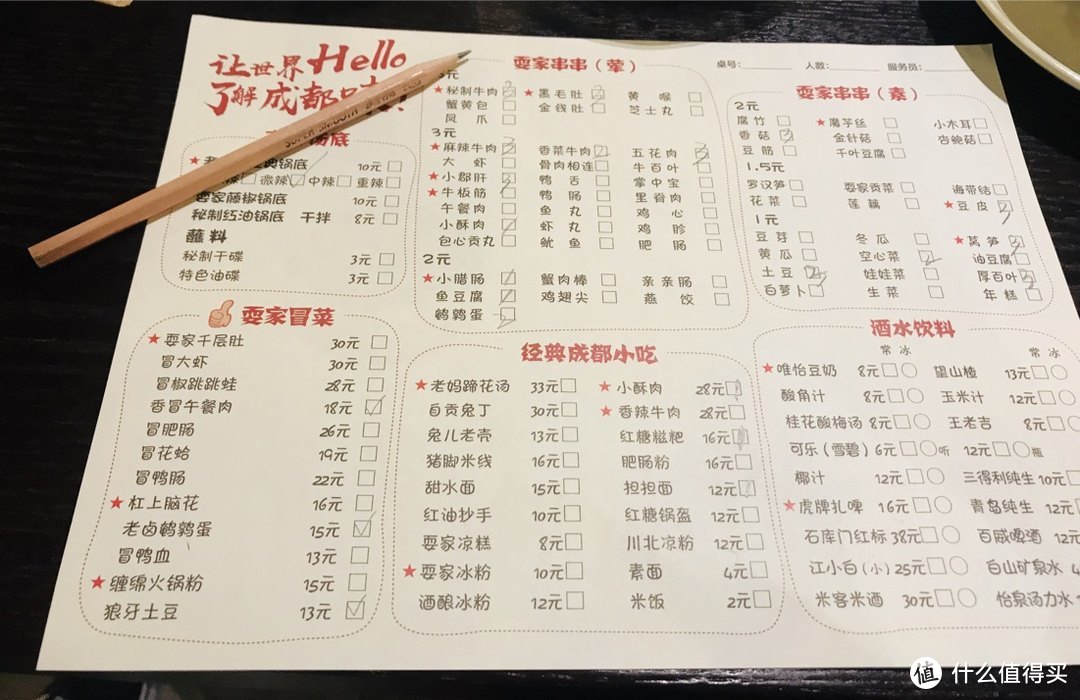 让世界Hello
了解成都
桌号: 人数: 服务员:
锅底 10元
微辣 中辣 重辣
耍家藤椒锅底 10元
秘制红油锅底 干拌 8元
蘸料
秘制干碟 3元
特色油碟 3元
耍家串串（荤）
秘制牛肉 黑毛肚 黄喉
蟹黄包 金钱肚 芝士丸
凤爪
3元
麻辣牛肉 香菜牛肉 五花肉
大虾 骨肉相连 牛百叶
小郡肝 鸭舌 掌中宝
牛板筋 鸭肠 里脊肉
午餐肉 鱼丸 鸡心
小酥肉 虾丸 鸡胗
包心贡丸 鱿鱼 肥肠
2元
小腊肠 蟹肉棒 亲亲肠
鱼豆腐 鸡翅尖 燕饺
鹌鹑蛋
耍家串串（素）
2元
腐竹 魔芋丝 小木耳
香菇 金针菇 杏鲍菇
豆筋 千叶豆腐
1.5元
罗汉笋 耍家贡菜 海带结
花菜 莲藕 豆皮
1元
豆芽 冬瓜 莴笋
黄瓜 空心菜 油豆腐
土豆 娃娃菜 厚百叶
白萝卜 生菜 年糕
耍家冒菜
耍家千层肚 30元
冒大虾 30元
冒椒跳跳蛙 28元
香冒午餐肉 18元
冒肥肠 26元
冒花蛤 19元
冒鸭肠 22元
杠上脑花 16元
老卤鹌鹑蛋 15元
冒鸭血 13元
缠绵火锅粉 15元
狼牙土豆 13元
经典成都小吃
老妈蹄花汤 33元 小酥肉 28元
自贡兔丁 30元 香辣牛肉 28元
兔儿老壳 13元 红糖糍粑 16元
猪脚米线 16元 肥肠粉 16元
甜水面 15元 担担面 12元
红油抄手 10元 红糖锅盔 12元
耍家凉糕 8元 川北凉粉 12元
耍家冰粉 10元 素面 4元
酒酿冰粉 12元 米饭 2元
酒水饮料
常 冰 常 冰
唯怡豆奶 8元 望山楂 13元
酸角汁 8元 玉米汁 12元
桂花酸梅汤 8元 王老吉 8元
可乐（雪碧）6元 听 12元 瓶
椰汁 12元 三得利纯生 10元
虎牌扎啤 16元 青岛纯生 12元
石库门红标 38元 百威啤酒 12元
江小白（小）25元 白山矿泉水
米客米酒 30元 怡泉汤力水
值 什么值得买